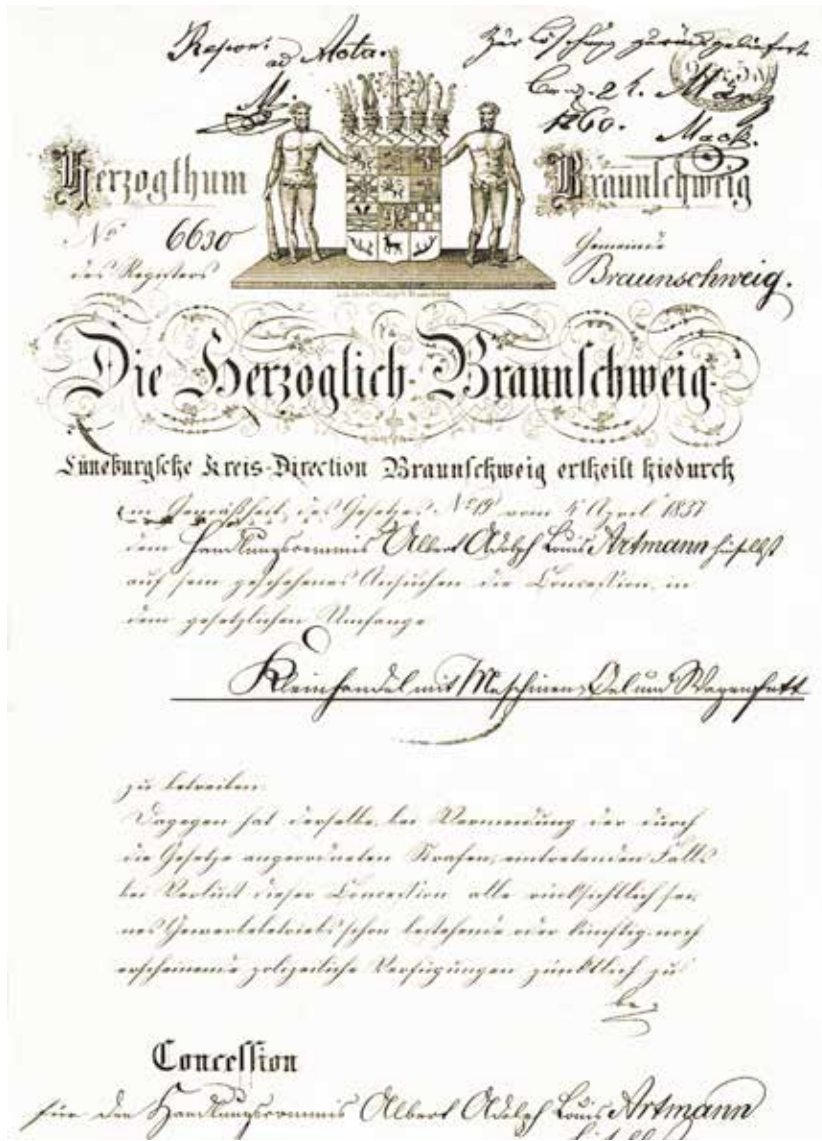 Reponi ad Acta.
Zur Löschung zurückgeliefert
M.
24. März
1860. Mack.
Herzogthum Braunschweig
No 6630
des Registers
Gemeinde
Braunschweig.
Die Herzoglich-Braunschweig-
Lüneburgsche Kreis-Direction Braunschweig ertheilt hiedurch
in Gemäßheit des Gesetzes No 19 vom 4 April 1837
dem Handlungscommis Albert Adolph Louis Artmann hieselbst
auf sein geschehenes Ansuchen die Concession, in
dem gesetzlichen Umfange
Kleinhandel mit Maschinen Oel und Wagenfett
zu betreiben.
Dagegen hat derselbe, bei Vermeidung der durch
die Gesetze angeordneten Strafen, eintretenden Falls
bei Verlust dieser Concession alle rücksichtlich sei,
nes Gewerbebetriebs schon bestehende oder künftig noch
erscheinende polizeiliche Verfügungen pünktlich zu
be,
Concession
für den Handlungscommis Albert Adolph Louis Artmann